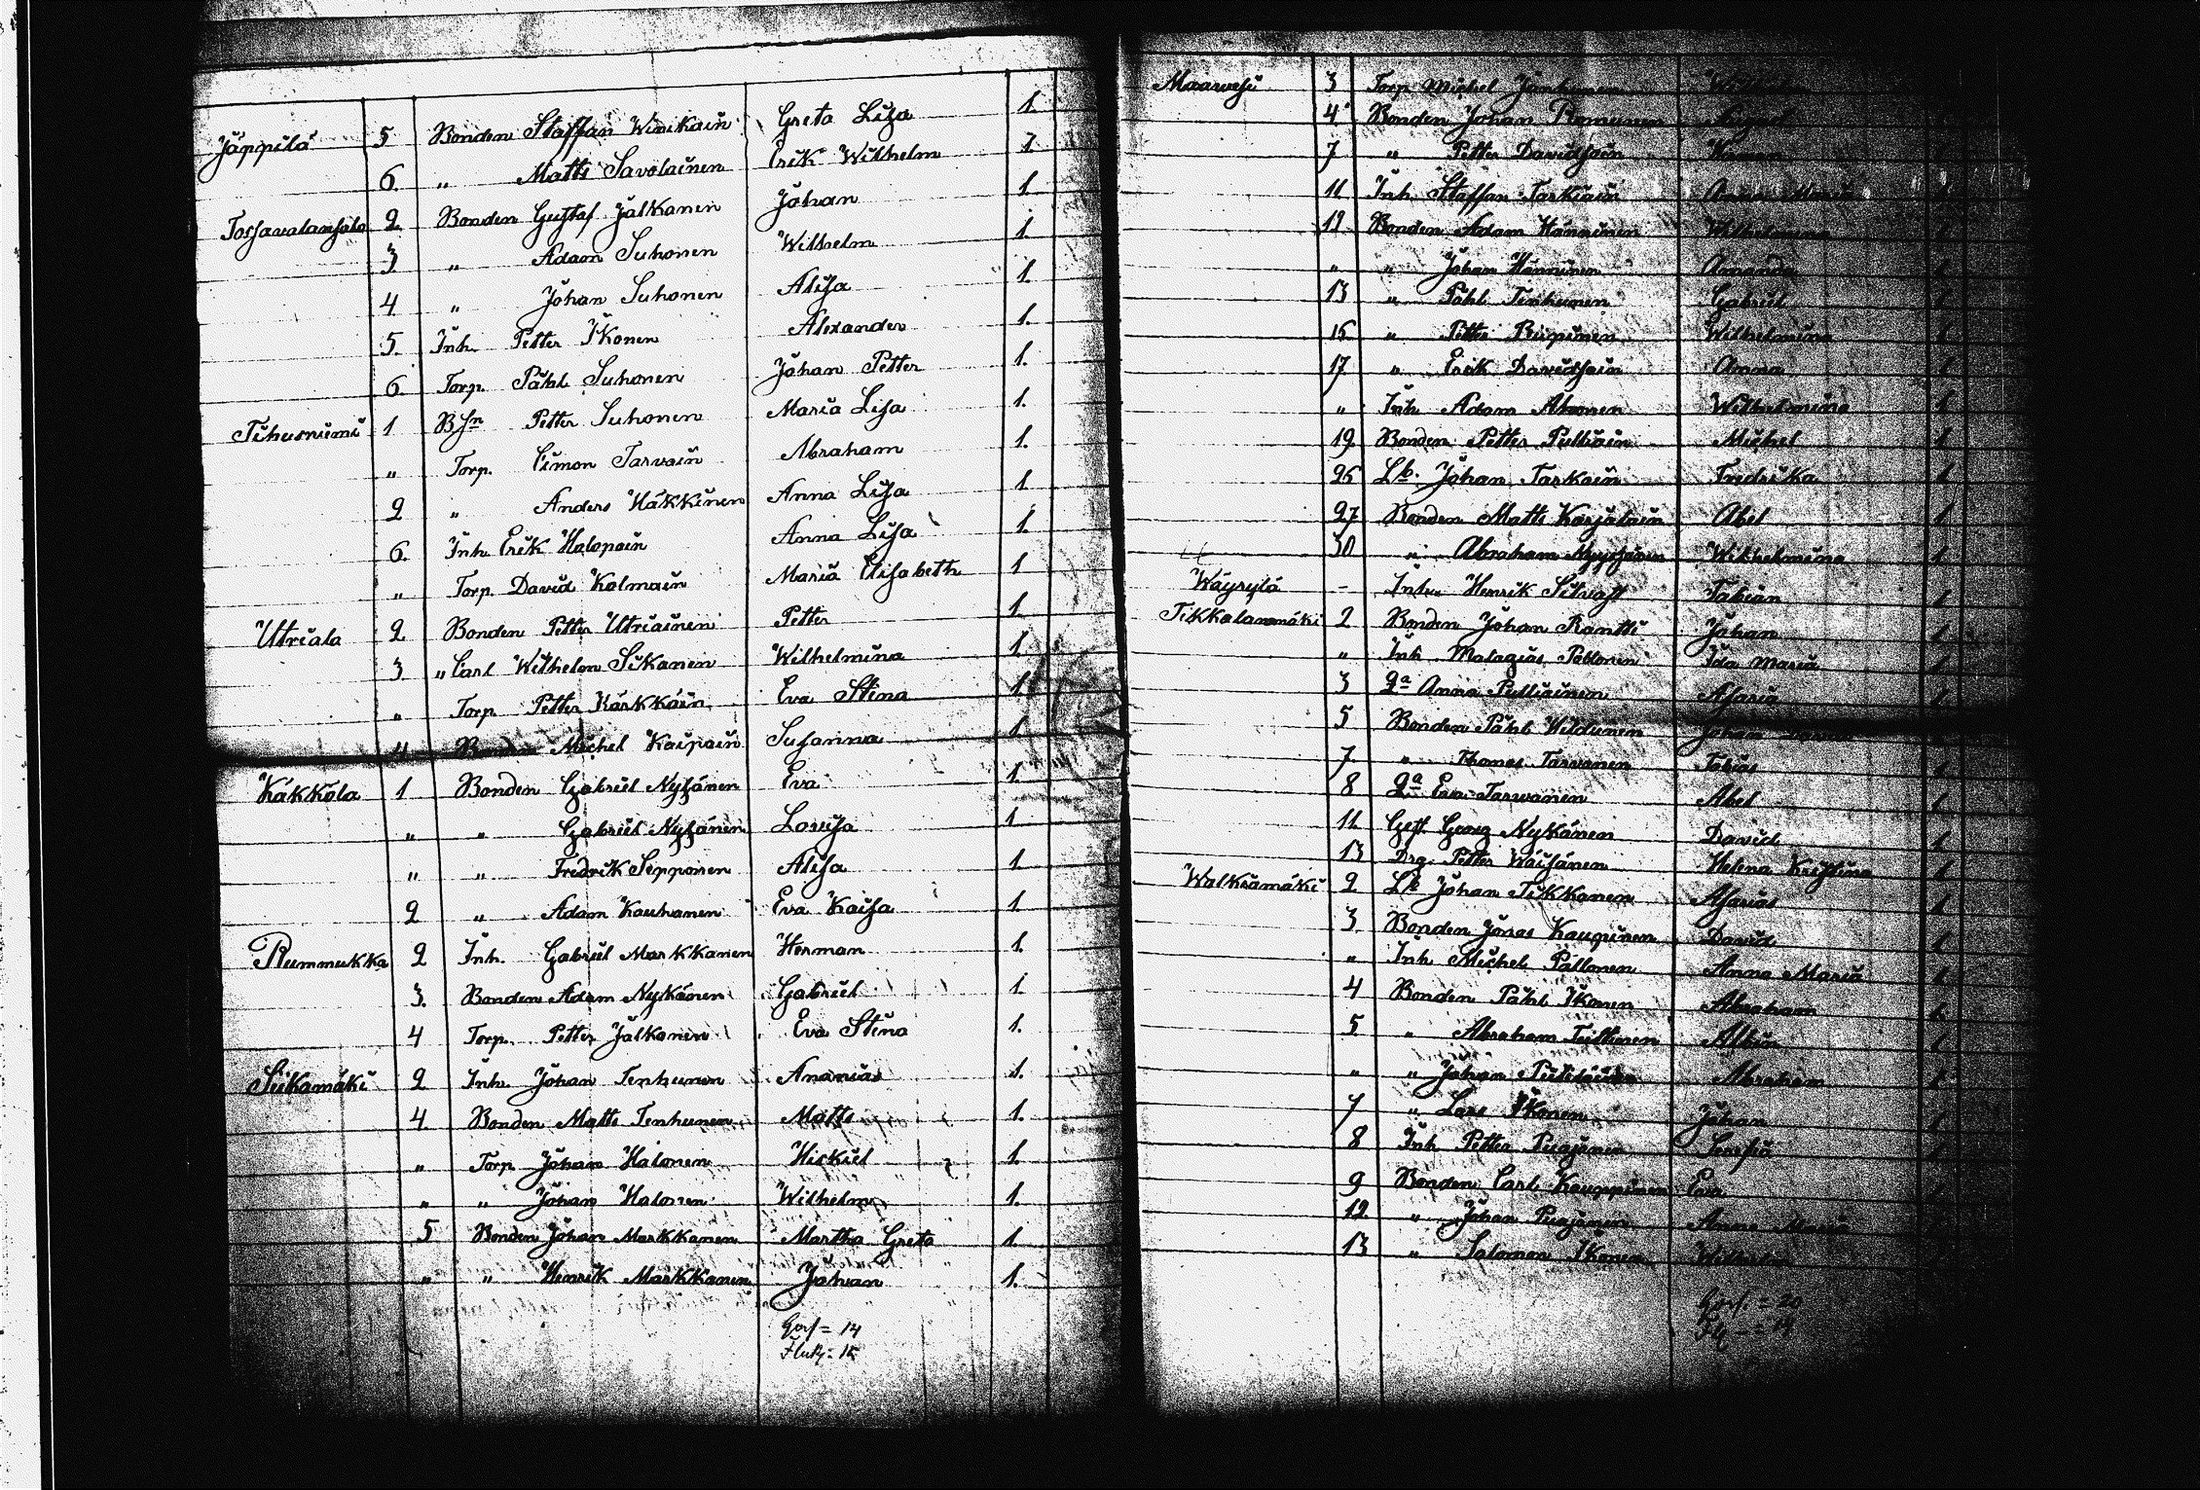 Jäppilä 5 Bonden Staffan Winikain Greta Lisa 1.
6. " Matts Savolainen Erik Wilhelm 1.
Tossavalansalo 2. Bonden Gustaf Jalkanen Johan 1.
3 " Adam Suhonen Wilhelm 1.
4 " Johan Suhonen Alisa 1.
5. Inh. Petter Ikonen Alexander 1.
6 Torp. Påhl Suhonen Johan Petter 1.
Tihusniemi 1 Bsn Petter Suhonen Maria Lisa 1.
" Torp. Simon Tarvain Abraham 1.
2 " Anders Häkkinen Anna Lisa 1.
6. Inh. Erik Halopain Anna Lisa 1.
" Torp. David Kolmain Maria Elisabeth 1
Utriala 2 Bonden Petter Utriainen Petter 1
3 " Carl Wilhelm Sikanen Wilhelmina 1.
" Torp. Petter Kärkkäin Eva Stina 1
4 Bonden Michel Kaipain Susanna 1
Käkkölä 1 Bonden Gabriel Nykänen Eva 1.
" " Gabriel Nykänen Lovisa 1
" " Fredrik Sepponen Alisa 1
2 " Adam Kauhanen Eva Kaisa 1.
Rummukka 2 Inh. Gabriel Markkanen Herman 1.
3. Bonden Adam Nykänen Gabriel 1.
4 Torp. Petter Jalkanen Eva Stina 1.
Suikamäki 2 Inh. Johan Tenhunen Ananias 1.
4 Bonden Matts Tenhunen Matts 1.
" Torp. Johan Halonen Hiskiel 1.
" " Johan Halonen Wilhelm 1.
5 Bonden Johan Markkanen Martha Greta 1.
" " Henrik Markkanen Johan 1.
Goss = 14
Flick. = 15
Maavesi 3 Torp Michel Jänkinen
4 Bonden Johan Romunen
7 " Petter Davidsain Herman
11 Inh. Staffan Tarkiain Anna Maria
12 Bonden Adam Hänninen Wilhelmina
" " Johan Hänninen Amanda 1
13 " Påhl Tenhunen Gabriel 1
15 " Petter Wilhelmina 1
17 " Erik Davidsain Anna 1
" Inh. Adam Ahonen Wilhelmina 1
19 Bonden Petter Pulliain Michel 1
25 Lb. Johan Tarkain Fredrika 1
27 Bonden Matts Karjalain Abel 1
30 " Abraham Wilhelmina 1
Wäyrylä - Inh. Henrik Silvast Fabian 1
Tikkalanmäki 2 Bonden Johan Rantti Johan 1
" Inh. Malagias Pällonen Ida Maria 1
3 Qa Anna Pulliainen Asaria 1
5 Bonden Påhl Johan
7 " Thomas Tarvanen Tobias 1
8 Qa Eva Tarvanen Abel 1
11. Georg Nykänen David 1
13 Drg. Petter Wäisänen Helena Kristina 1
Walkiamäki 2 Lb Johan Tikkanen Asarias 1
3 Bonden Jonas Kaupinen David 1
" Inh Michel Pällonen Anna Maria 1
4 Bonden Påhl Ikonen Abraham 1
5 " Abraham Albin 1
" " Johan Abraham 1
7 " Lars Ikonen Johan 1
8 Inh Petter Puajänen Sofia
9 Bonden Carl Kauppinen Eva
12 " Johan Puajänen Anna Maria
13 " Salomon Ikonen
Goss. = 20